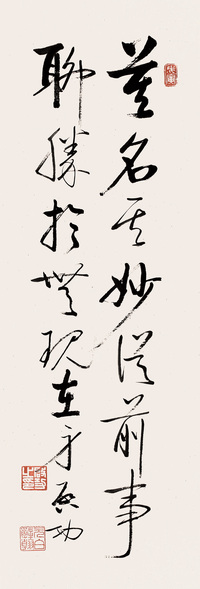 莫名其妙從前事
聊勝於無現在身启功